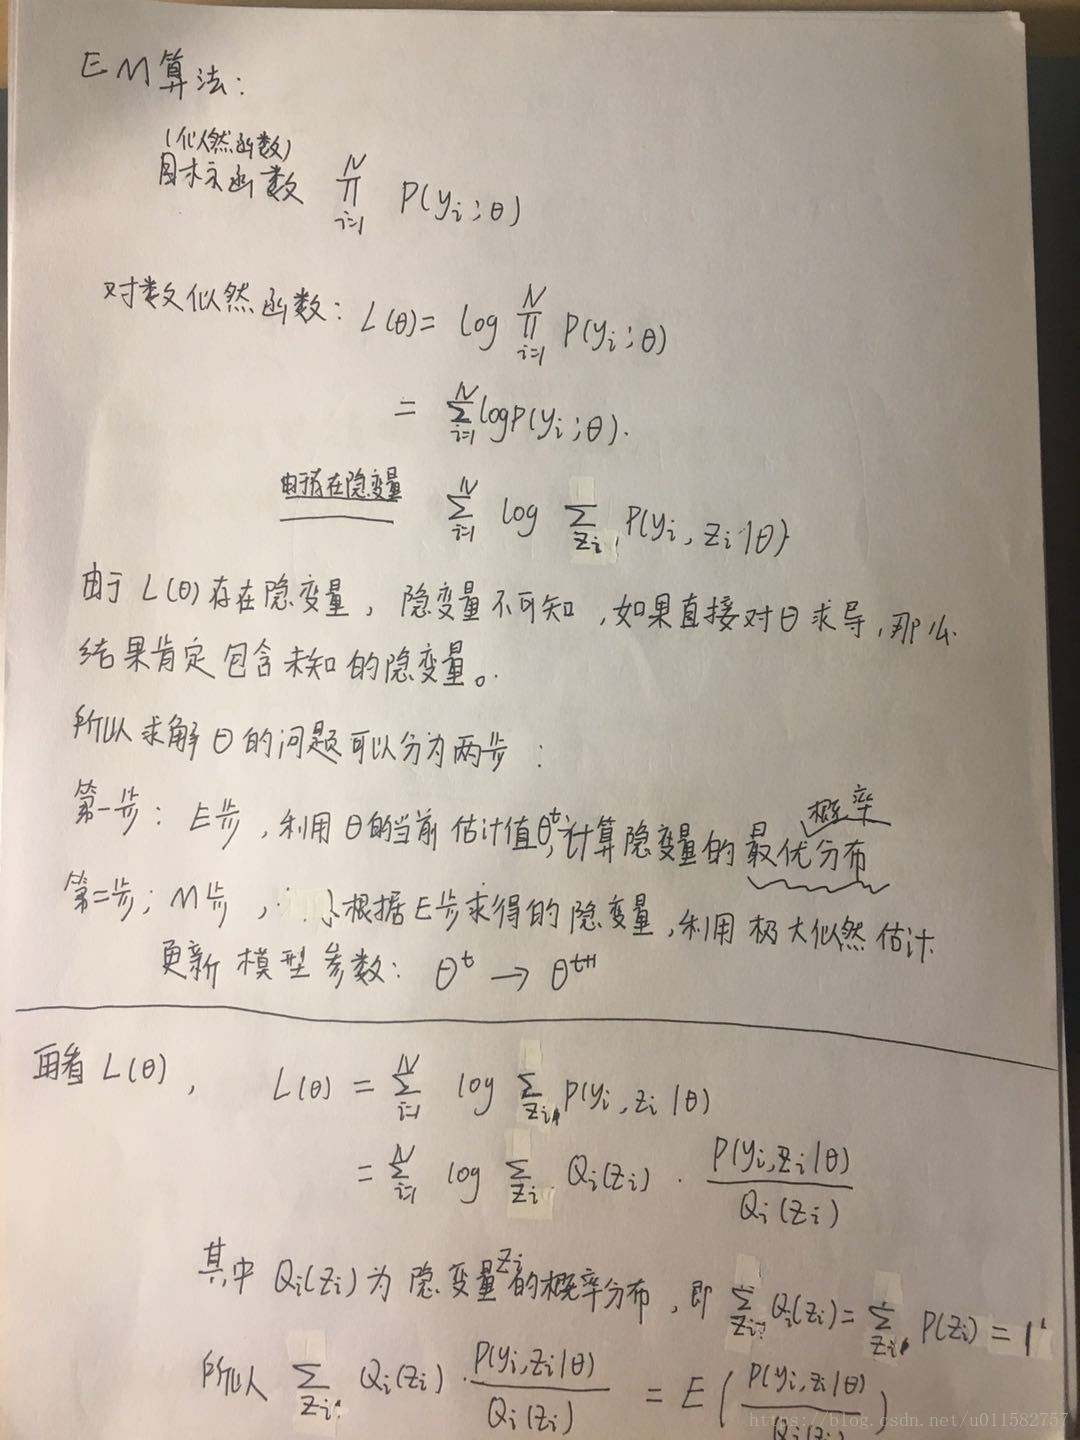 EM算法:
(似然函数)
目标函数 ∏_{i=1}^{N} P(y_i;θ)
对数似然函数: L(θ)= log ∏_{i=1}^{N} P(y_i;θ)
= ∑_{i=1}^{N} log P(y_i;θ).
由于存在隐变量 ∑_{i=1}^{N} log ∑_{z_i} P(y_i, z_i|θ)
由于 L(θ)存在隐变量, 隐变量不可知,如果直接对θ求导,那么
结果肯定包含未知的隐变量。
所以求解θ的问题可以分为两步:
概率
第一步: E步,利用θ的当前估计值θ^t,计算隐变量的最优分布
第二步; M步, 根据E步求得的隐变量,利用极大似然估计
更新模型参数: θ^t → θ^{t+1}
再看 L(θ), L(θ) = ∑_{i=1}^{N} log ∑_{z_i} P(y_i, z_i|θ)
= ∑_{i=1}^{N} log ∑_{z_i} Q_i(z_i) · P(y_i,z_i|θ) / Q_i(z_i)
其中 Q_i(z_i)为隐变量z_i的概率分布,即 ∑_{z_i} Q_i(z_i)= ∑_{z_i} P(z_i) = 1
所以 ∑_{z_i} Q_i(z_i) · P(y_i,z_i|θ) / Q_i(z_i) = E( P(y_i,z_i|θ) / Q_i(z_i) )
https://blog.csdn.net/u011582757